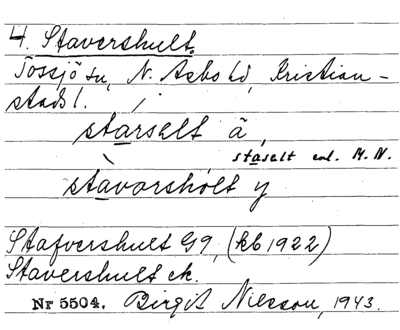 4. Stavershult.
Tossjö sn, N. Åsbo hd, Kristian-
stads l.
starselt ä,
staselt enl. M. N.
stavorshólt y
Stafvershult G9, (kb 1922)
Stavershult ek.
Nr 5504. Birgit Nilsson, 1943.